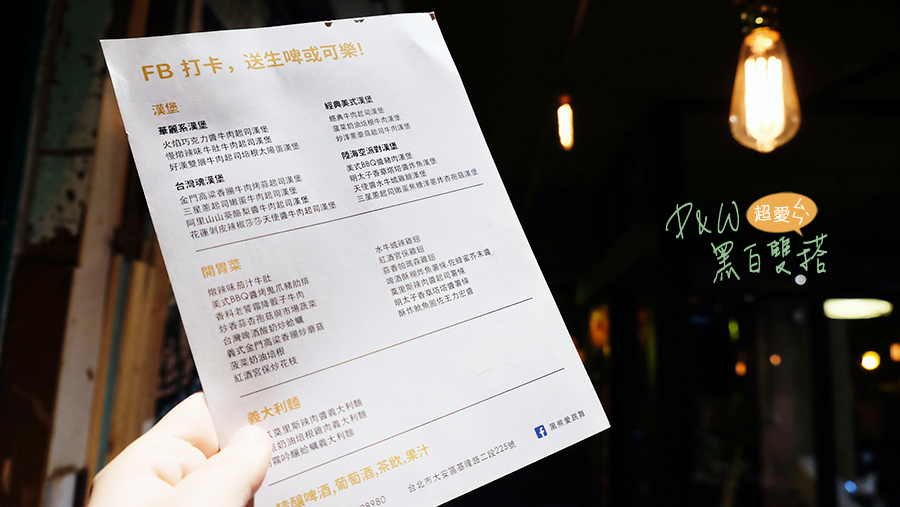 FB 打卡，送生啤或可樂!
漢堡
華麗系漢堡
火焰巧克力醬牛肉起司漢堡
慢燉辣味牛肚牛肉起司漢堡
好漢雙層牛肉起司培根太陽蛋漢堡
台灣魂漢堡
金門高梁香腸牛肉烤蒜起司漢堡
三星蔥起司嫩蛋牛肉起司漢堡
阿里山山葵酪梨醬牛肉起司漢堡
花蓮剝皮辣椒莎莎天使醬牛肉起司漢堡
經典美式漢堡
經典牛肉起司漢堡
菠菜奶油培根牛肉漢堡
炒洋蔥蘑菇起司牛肉漢堡
陸海空派對漢堡
美式BBQ醬豬肉漢堡
明太子香草塔塔醬炸魚漢堡
天使醬水牛城雞腿漢堡
三星蔥起司嫩蛋魚
開胃菜
燉辣味茄汁牛肚
美式BBQ醬烤鬼爪豬肋排
香料老饕霜降骰子牛肉
炒香蒜杏孢菇與市場蔬菜
台灣啤酒酸奶炒蛤蠣
義式金門高梁香腸炒蘑菇
菠菜奶油培根
紅酒宮保炒花枝
水牛城辣雞翅
紅酒宮保雞翅
蒜香帕瑪森雞翅
啤酒酥糊炸魚薯條,佐蜂蜜芥末醬
莫里斯辣肉醬起司薯條
明太子香草塔塔醬薯條
酥炸魷魚圈佐王力宏醬
義大利麵
莫里斯辣肉醬義大利麵
奶油培根雞肉義大利麵
吟釀蛤蠣義大利麵
精釀啤酒,葡萄酒,茶飲,果汁
8980
台北市大安區基隆路二段225號
黑熊愛跳舞
P&W
超愛ㄙ
黑白雙搭